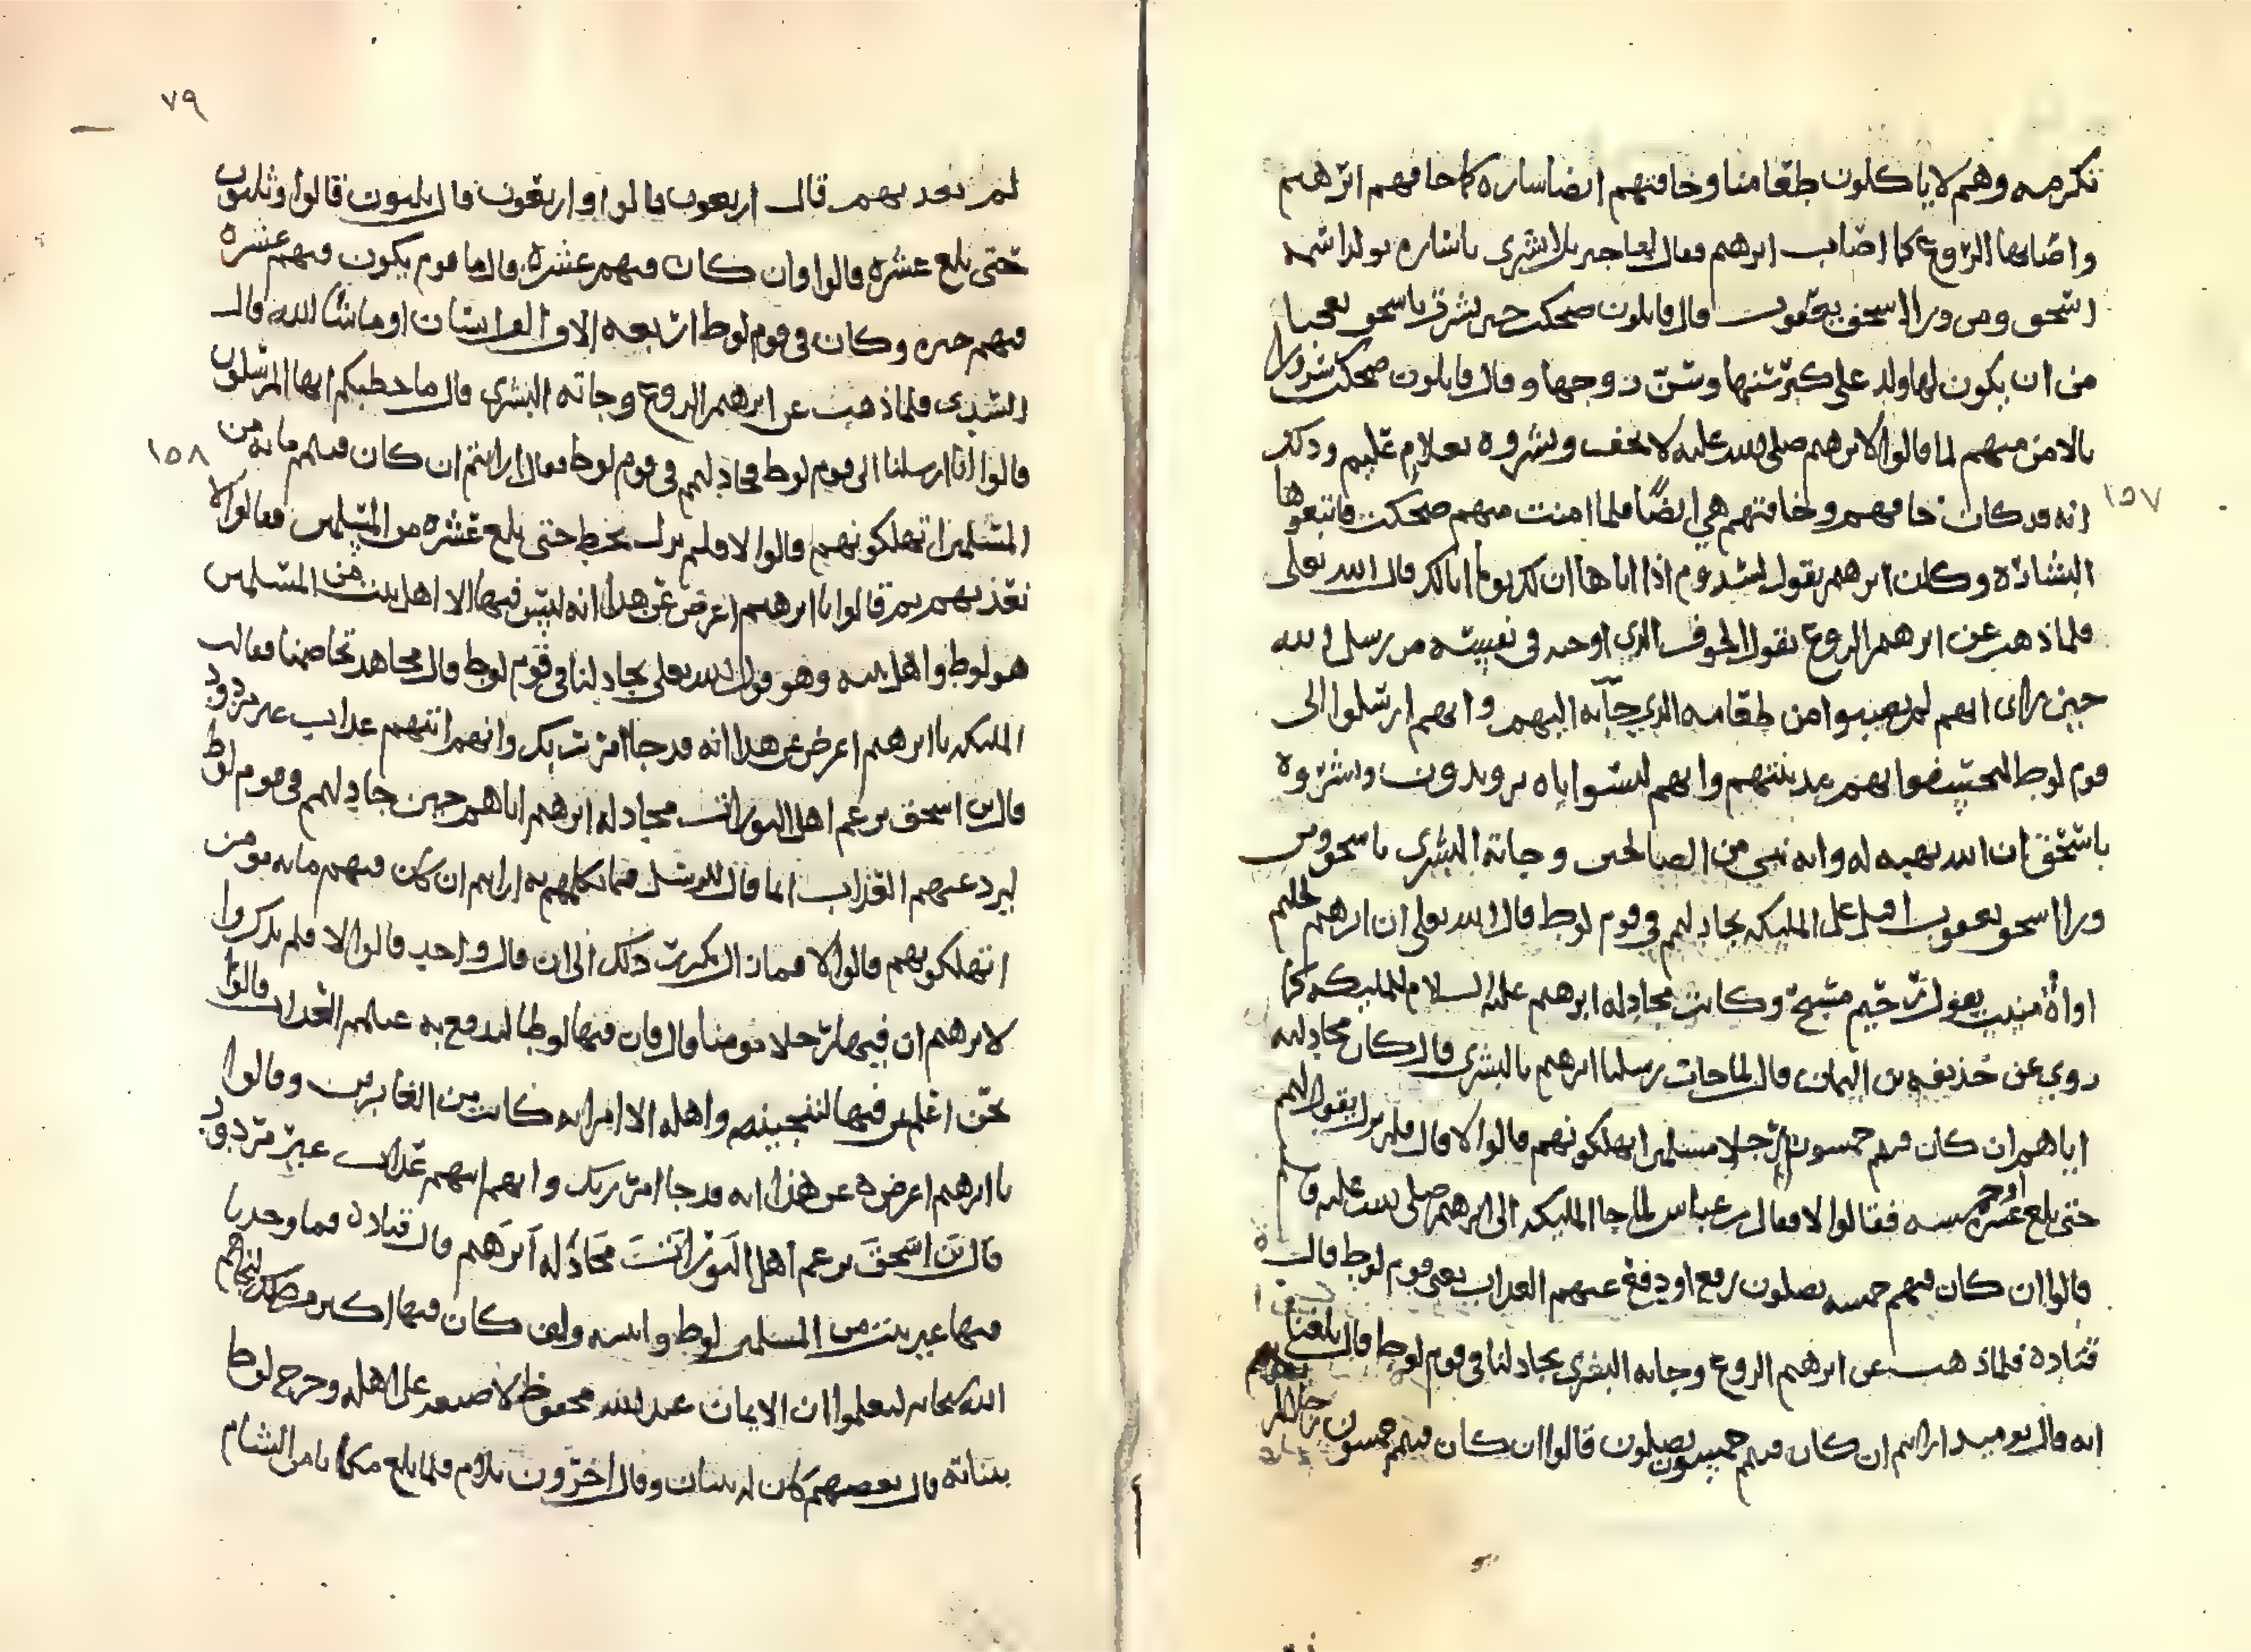 نكرمه وهم لا ياكلون طعامنا وخافتهم ايضا ساره كما خافهم ابرهيم
واصابها الروع كما اصاب ابرهيم فقال لها جبريل ابشري ياساره بولد اسمه
اسحق ومن ورا اسحق يعقوب قال قايلون ضحكت حين بشرت باسحق تعجبا
من ان يكون لها ولد على كبر سنها وسن زوجها وقال قايلون ضحكت سرورا
بالامن منهم لما قالوا لابرهيم صلى الله عليه لا تخف وبشروه بغلام عليم وذلك
انه قد كان خافهم وخافتهم هي ايضًا فلما امنت منهم ضحكت فاتبعوها
البشارة وكان ابرهيم يقول لسدوم اذا اتاها ان لك يوما قال الله تعلى
فلما ذهب عن ابرهيم الروع يقول الخوف الذي اوجد في نفسه من رسل الله
حين راى انهم لم يصيبوا من طعامه الذي جآبه اليهم وانهم ارسلوا الى
قوم لوط بمدينتهم وانهم ليسوا اياه يريدون وبشروه
باسحق ان الله يهبه له وانه نبي من الصالحين وجاته البشرى باسحق ومن
ورا اسحق يعقوب اقبل على المليكه يجادلهم في قوم لوط قال الله تعلى ان ابرهيم لحليم
اواهٌ منيب يقول رحيم مسبح وكانت مجادله ابرهيم عليه السلام للمليكه كما
روي عن حذيفه بن اليمان قال لما جات رسلنا ابرهيم بالبشرى قال كان مجادلته
اياهم ان كان فيهم خمسون رجلا مسلمين اتهلكونهم قالوا لا قال فلم يزل يقول لهم
حتى بلغ عشره او خمسه فقالوا لا فقال بن عباس لما جا المليكه الى ابرهيم صلى الله عليه
قالوا ان كان فيهم خمسه يصلون رفع او دفع عنهم العذاب يعني قوم لوط قال
قتاده فلما ذهب عن ابرهيم الروع وجاته البشرى يجادلنا في قوم لوط قال بلغنا
انه قال يوميذ ارايتم ان كان فيهم خمسون يصلون قالوا ان كان فيهم خمسون
١٥٧
٧٩
لم نعذبهم قال اربعون قالوا واربعون قال ثلثون قالوا وثلثون
حتى بلغ عشره قالوا وان كان فيهم عشره قال ما قوم يكون فيهم عشره
فيهم خير وكان في قوم لوط اربعه الاف الف انسان او ما شا الله قال
السدي فلما ذهب عن ابرهيم الروع وجاته البشرى قال ما خطبكم ايها المرسلون
قالوا انا ارسلنا الى قوم لوط فجادلهم في قوم لوط فقال ارايتم ان كان فيهم مايه من
المسلمين اتهلكونهم قالوا لا فلم يزل يحط حتى بلغ عشره من المسلمين فقالوا لا
نعذبهم ثم قالوا يا ابرهيم اعرض عن هذا انه ليس فيها الا اهل بيت من المسلمين
هو لوط واهل بيته وهو قول الله تعلى يجادلنا في قوم لوط قال مجاهد تخاصمنا فقالت
المليكه يا ابرهيم اعرض عن هذا انه قد جا امر ربك وانهم اتيهم عذاب غير مردود
قال بن اسحق يزعم اهل التوراة مجادله ابرهيم اياهم حين جادلهم في قوم لوط
ليرد عنهم العذاب انما قال للرسل فيما يكلمهم به ارايتم ان كان فيهم مايه مومن
اتهلكونهم قالوا لا فما زال يكرر ذلك الى ان قال واحد قالوا لا فلم يذكروا
لابرهيم ان فيها رجلا مومنا قال فان فيها لوطا ليدفع به عنهم العذاب قالوا
نحن اعلم بمن فيها لننجينه واهله الا امراته كانت من الغابرين وقالوا
يا ابرهيم اعرض عن هذا انه قد جا امر ربك وانهم اتيهم عذاب غير مردود
قال بن اسحق يزعم اهل التوراة مجادلة ابرهيم قال قتاده فما وجدنا
فيها غير بيت من المسلمين لوط وابنته ولو كان فيها اكثر من ذلك لنجاهم
الله سبحانه ليعلموا ان الايمان عند الله محفوظ لا ضيعه على اهله وخرج لوط
ببناته قال بعضهم كان له بنتان وقال اخرون ثلاث فلما بلغ مكانا من الشام
١٥٨